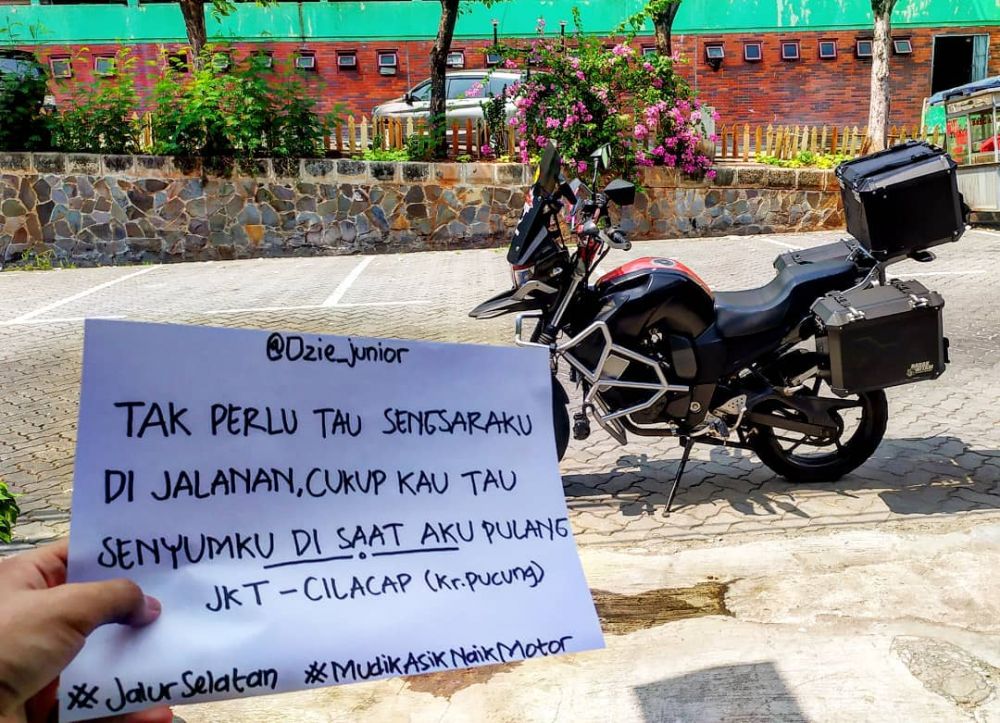 @Dzie_junior
TAK PERLU TAU SENGSARAKU
DI JALANAN, CUKUP KAU TAU
SENYUMKU DI SAAT AKU PULANG
JKT - CILACAP (Kr.pucung)
#JalurSelatan #MudikAsikNaikMotor